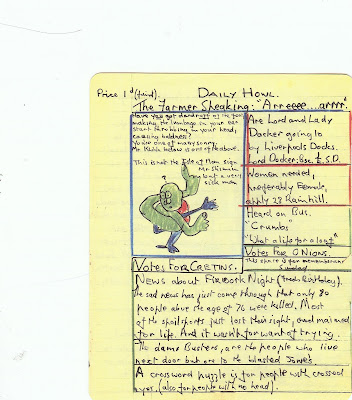 Price 1ᵈ (third). DAILY HOWL.
The Farmer Speaking: "Arreeee...arrrr".
Have you got dandruff of the foot
making the lumbago in your ear
start throbbing in your head,
causing baldness?
You're one of many sonny.
Mr. below is one of the above.
This is not the Isle of Man sign
Mr
but a very
sick man
Are Lord and Lady
Docker going to
by Liverpools Docks.
Lord Docker; Bsc. £.S.D.
Women needed,
preferably Female,
apply 28 Rainhill.
Heard on Bus.
"Crumbs"
"What a life for a loaf"
VOTES FOR ONIONS.
This space is for remembrance
Sunday
VOTES FOR CRETINS.
NEWS about Firework Night (Freds Birthday).
The sad news has just come through that only 80
people above the age of 76 were killed. Most
of the spoil sports just lost their sight, and maimed
for life. And it wasn't for want of trying.
The dams Busters, are the people who live
next door but one to the blasted Jones's.
A crossword puzzle is for people with crossed
eyes. (also for people with no head).